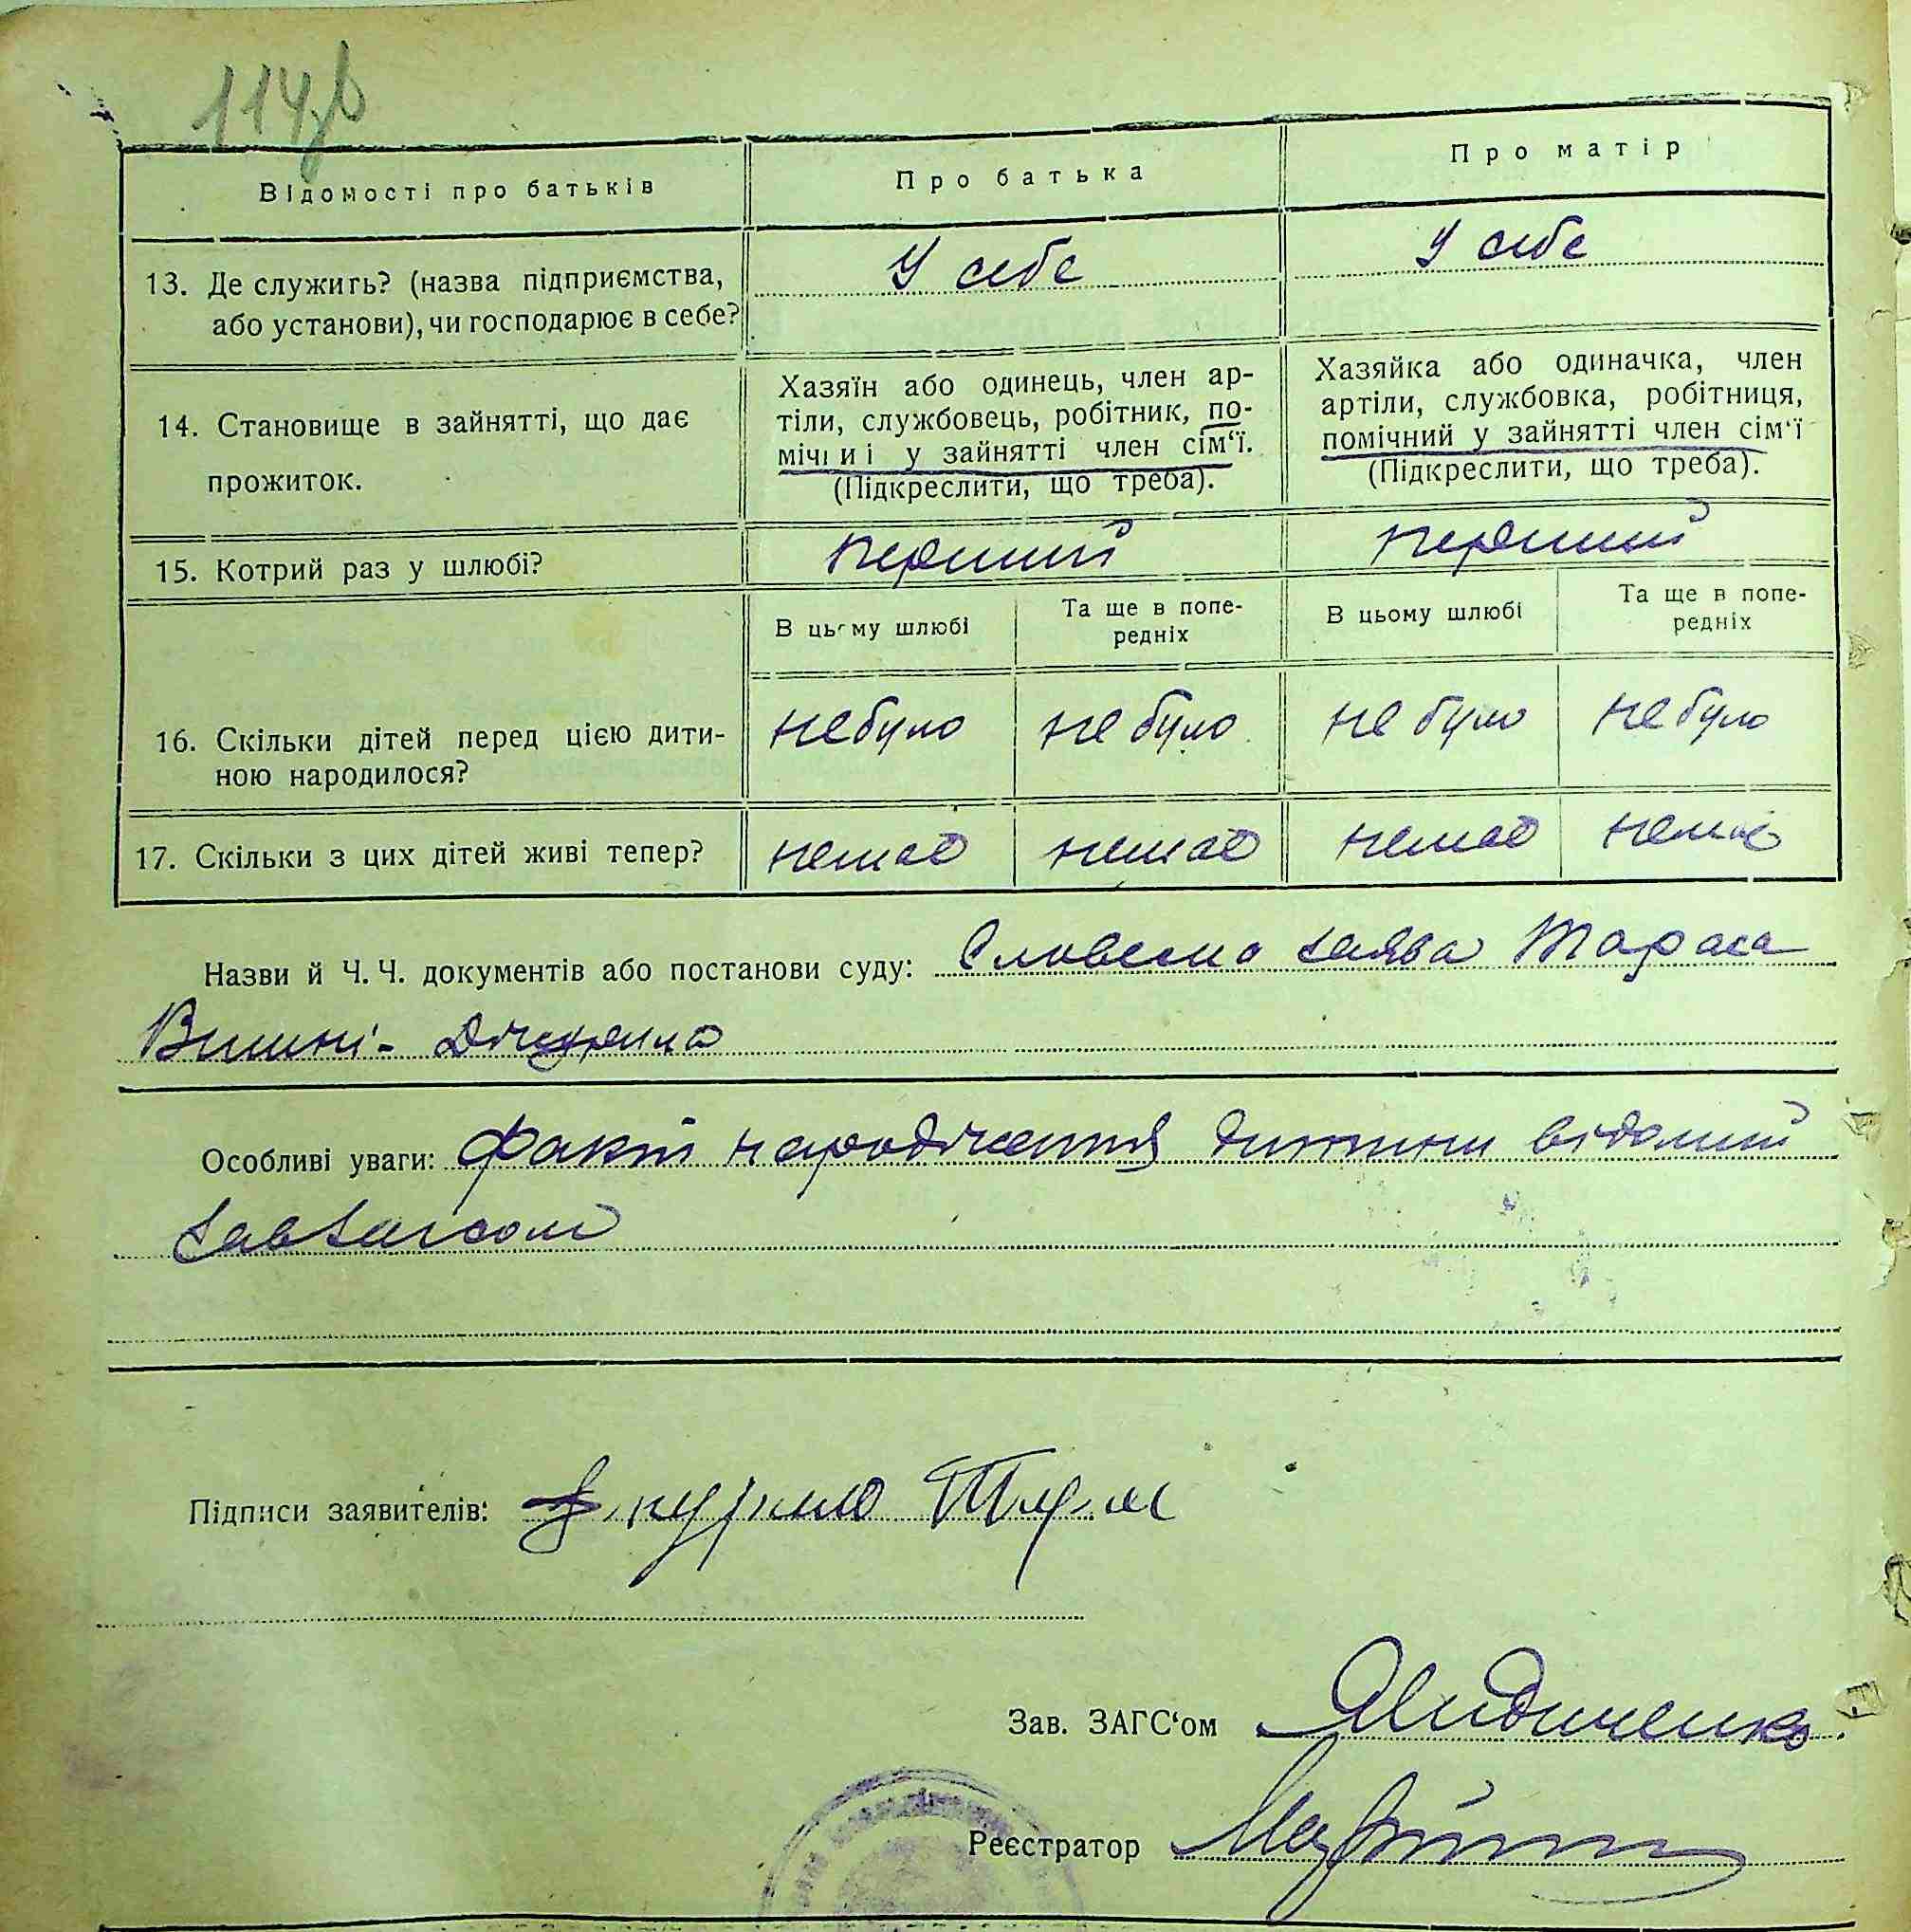 114зв
Відомості про батьків
Про батька
Про матір
13. Де служить? (назва підприємства,
або установи), чи господарює в себе?
У себе
У себе
14. Становище в зайнятті, що дає
прожиток.
Хазяїн або одинець, член ар-
тіли, службовець, робітник, по-
мічний у зайнятті член сім‘ї.
(Підкреслити, що треба).
Хазяйка або одиначка, член
артіли, службовка, робітниця,
помічний у зайнятті член сім‘ї
(Підкреслити, що треба).
15. Котрий раз у шлюбі?
перший
перший
В цьому шлюбі
Та ще в попе-
редніх
В цьому шлюбі
Та ще в попе-
редніх
16. Скільки дітей перед цією дити-
ною народилося?
не було
не було
не було
не було
17. Скільки з цих дітей живі тепер?
немає
немає
немає
немає
Назви й Ч. Ч. документів або постанови суду: Словесна заява Тараса
Вишні-
Особливі уваги: Факт народження дитини відомий
Завзагсом
Підписи заявителів:
Зав. ЗАГС‘ом
Реєстратор